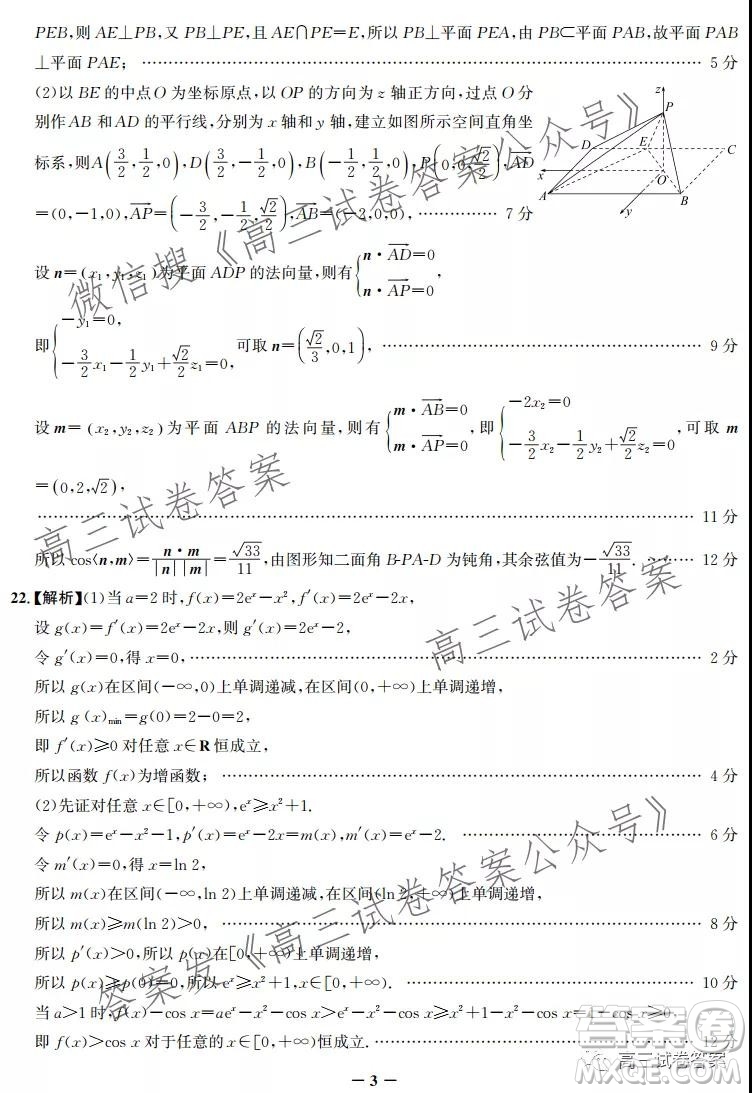 PEB,则 AE⊥PB,又 PB⊥PE,且 AE∩PE=E,所以 PB⊥平面 PEA,由 PB⊂平面 PAB,故平面 PAB
⊥平面 PAE; …… 5 分
(2)以 BE 的中点 O 为坐标原点,以 OP 的方向为 z 轴正方向,过点 O 分
别作 AB 和 AD 的平行线,分别为 x 轴和 y 轴,建立如图所示空间直角坐
标系,则 A(3/2,1/2,0),D(3/2,-1/2,0),B(-1/2,1/2,0),P(0,0,√2/2),AD→
=(0,-1,0),AP→=(-3/2,-1/2,√2/2),AB→=(-2,0,0), …… 7 分
z
P
D
E
C
x
O
A
B
y
设 n=(x₁,y₁,z₁)为平面 ADP 的法向量,则有{n·AD→=0
n·AP→=0,
即{-y₁=0,
-3/2x₁-1/2y₁+√2/2z₁=0,可取 n=(√2/3,0,1), …… 9 分
设 m=(x₂,y₂,z₂)为平面 ABP 的法向量,则有{m·AB→=0
m·AP→=0,即{-2x₂=0
-3/2x₂-1/2y₂+√2/2z₂=0,可取 m
=(0,2,√2),
…… 11 分
所以 cos⟨n,m⟩=n·m/|n||m|=√33/11,由图形知二面角 B-PA-D 为钝角,其余弦值为-√33/11. …… 12 分
22.【解析】(1)当 a=2 时,f(x)=2eˣ-x²,f′(x)=2eˣ-2x,
设 g(x)=f′(x)=2eˣ-2x,则 g′(x)=2eˣ-2,
令 g′(x)=0,得 x=0, …… 2 分
所以 g(x)在区间(-∞,0)上单调递减,在区间(0,+∞)上单调递增,
所以 g(x)min=g(0)=2-0=2,
即 f′(x)≥0 对任意 x∈R 恒成立,
所以函数 f(x)为增函数; …… 4 分
(2)先证对任意 x∈[0,+∞),eˣ≥x²+1.
令 p(x)=eˣ-x²-1,p′(x)=eˣ-2x=m(x),m′(x)=eˣ-2. …… 6 分
令 m′(x)=0,得 x=ln 2,
所以 m(x)在区间(-∞,ln 2)上单调递减,在区间(ln 2,+∞)上单调递增,
所以 m(x)≥m(ln 2)>0, …… 8 分
所以 p′(x)>0,所以 p(x)在[0,+∞)上单调递增,
所以 p(x)≥p(0)=0,所以 eˣ≥x²+1. …… 10 分
当 a>1 时,f(x)-cos x=aeˣ-x²-cos x>eˣ-x²-cos x≥x²+1-x²-cos x=1-cos x≥0,
即 f(x)>cos x 对于任意的 x∈[0,+∞)恒成立. …… 12 分
— 3 —
微信搜《高三试卷答案公众号》
高三试卷答案
高三试卷答案
答案发《高三试卷答案公众号》
答案圈
MXQE.COM
高三试卷答案